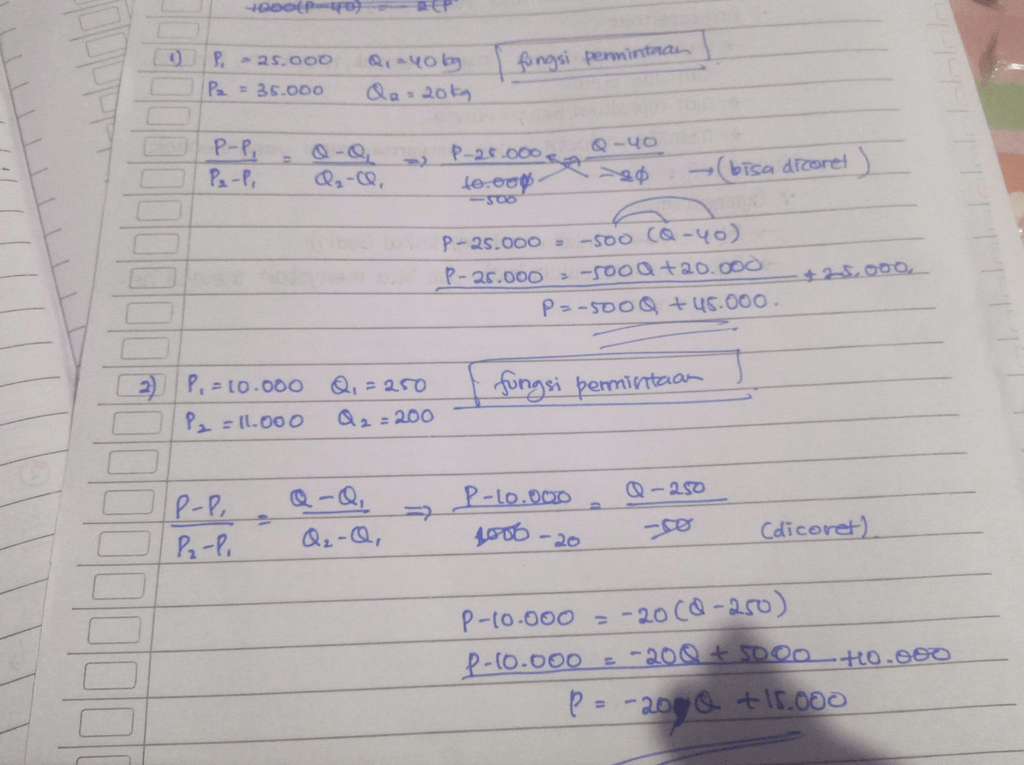 1000(P-40) = -2(P
1) P₁ = 25.000 Q₁ = 40 kg fungsi permintaan
P₂ = 35.000 Q₂ = 20 kg
P-P₁/P₂-P₁ = Q-Q₁/Q₂-Q₁ => P-25.000/10.000 = Q-40/-20 → (bisa dicoret)
-500
P-25.000 = -500 (Q-40)
P-25.000 = -500Q + 20.000 + 25.000
P = -500Q + 45.000.
2) P₁ = 10.000 Q₁ = 250 fungsi permintaan
P₂ = 11.000 Q₂ = 200
P-P₁/P₂-P₁ = Q-Q₁/Q₂-Q₁ => P-10.000/1000 -20 = Q-250/-50 (dicoret)
P-10.000 = -20(Q-250)
P-10.000 = -20Q + 5000 +10.000
P = -20Q + 15.000